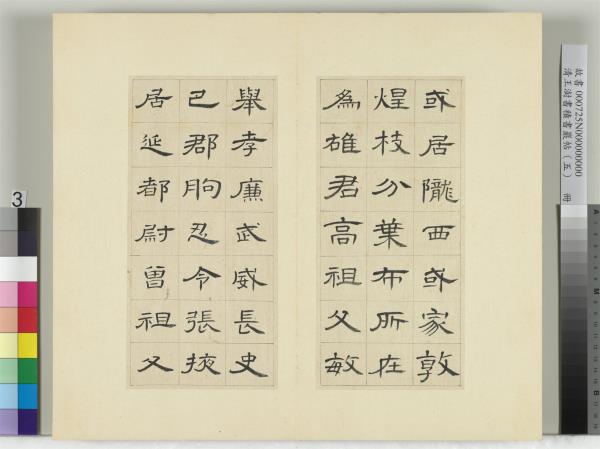 或居隴西或家敦
煌枝分葉布所在
為雄君高祖父敏
舉孝廉武威長史
巴郡朐忍令張掖
居延都尉曾祖父
故書 000725N000000000
清王澍書積書巖帖(五) 冊
3
A
M
B